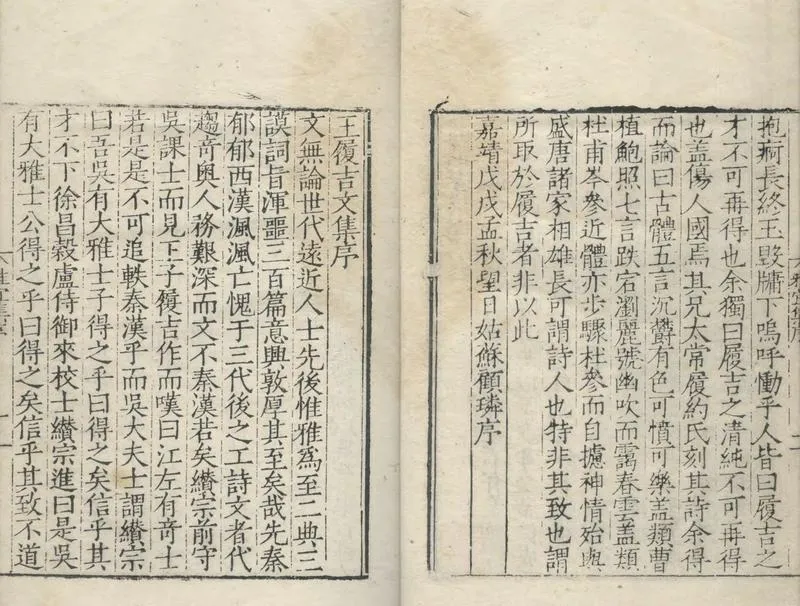 抱痾長終玉毀牖下嗚呼慟乎人皆曰履吉之
才不可再得也余獨曰履吉之清純不可再得
也盖傷人國焉其兄太常履約氏刻其詩余得
而論曰古體五言沉欝有色可憤可樂盖類曹
植鮑照七言跌宕瀏麗號幽吹而靄春雲盖類
杜甫岑參近體亦步驟杜參而自攄神情始與
盛唐諸家相雄長可謂詩人也特非其致也謂
所取於履吉者非以此
嘉靖戊戌孟秋望日姑蘇顧璘序
王履吉文集序
文無論世代遠近人士先後惟雅為至二典三
謨詞旨渾噩三百篇意興敦厚其至矣哉先秦
郁郁西漢渢渢亡愧于三代後之工詩文者代
趨竒奥人務艱深而文不秦漢若矣纘宗前守
吳課士而見王子履吉作而嘆曰江左有竒士
若是是不可追軼秦漢乎而吳大夫士謂纘宗
曰吾吳有大雅士子得之乎曰得之矣信乎其
才不下徐昌穀盧侍御來校士纘宗進曰是吳
有大雅士公得之乎曰得之矣信乎其致不道